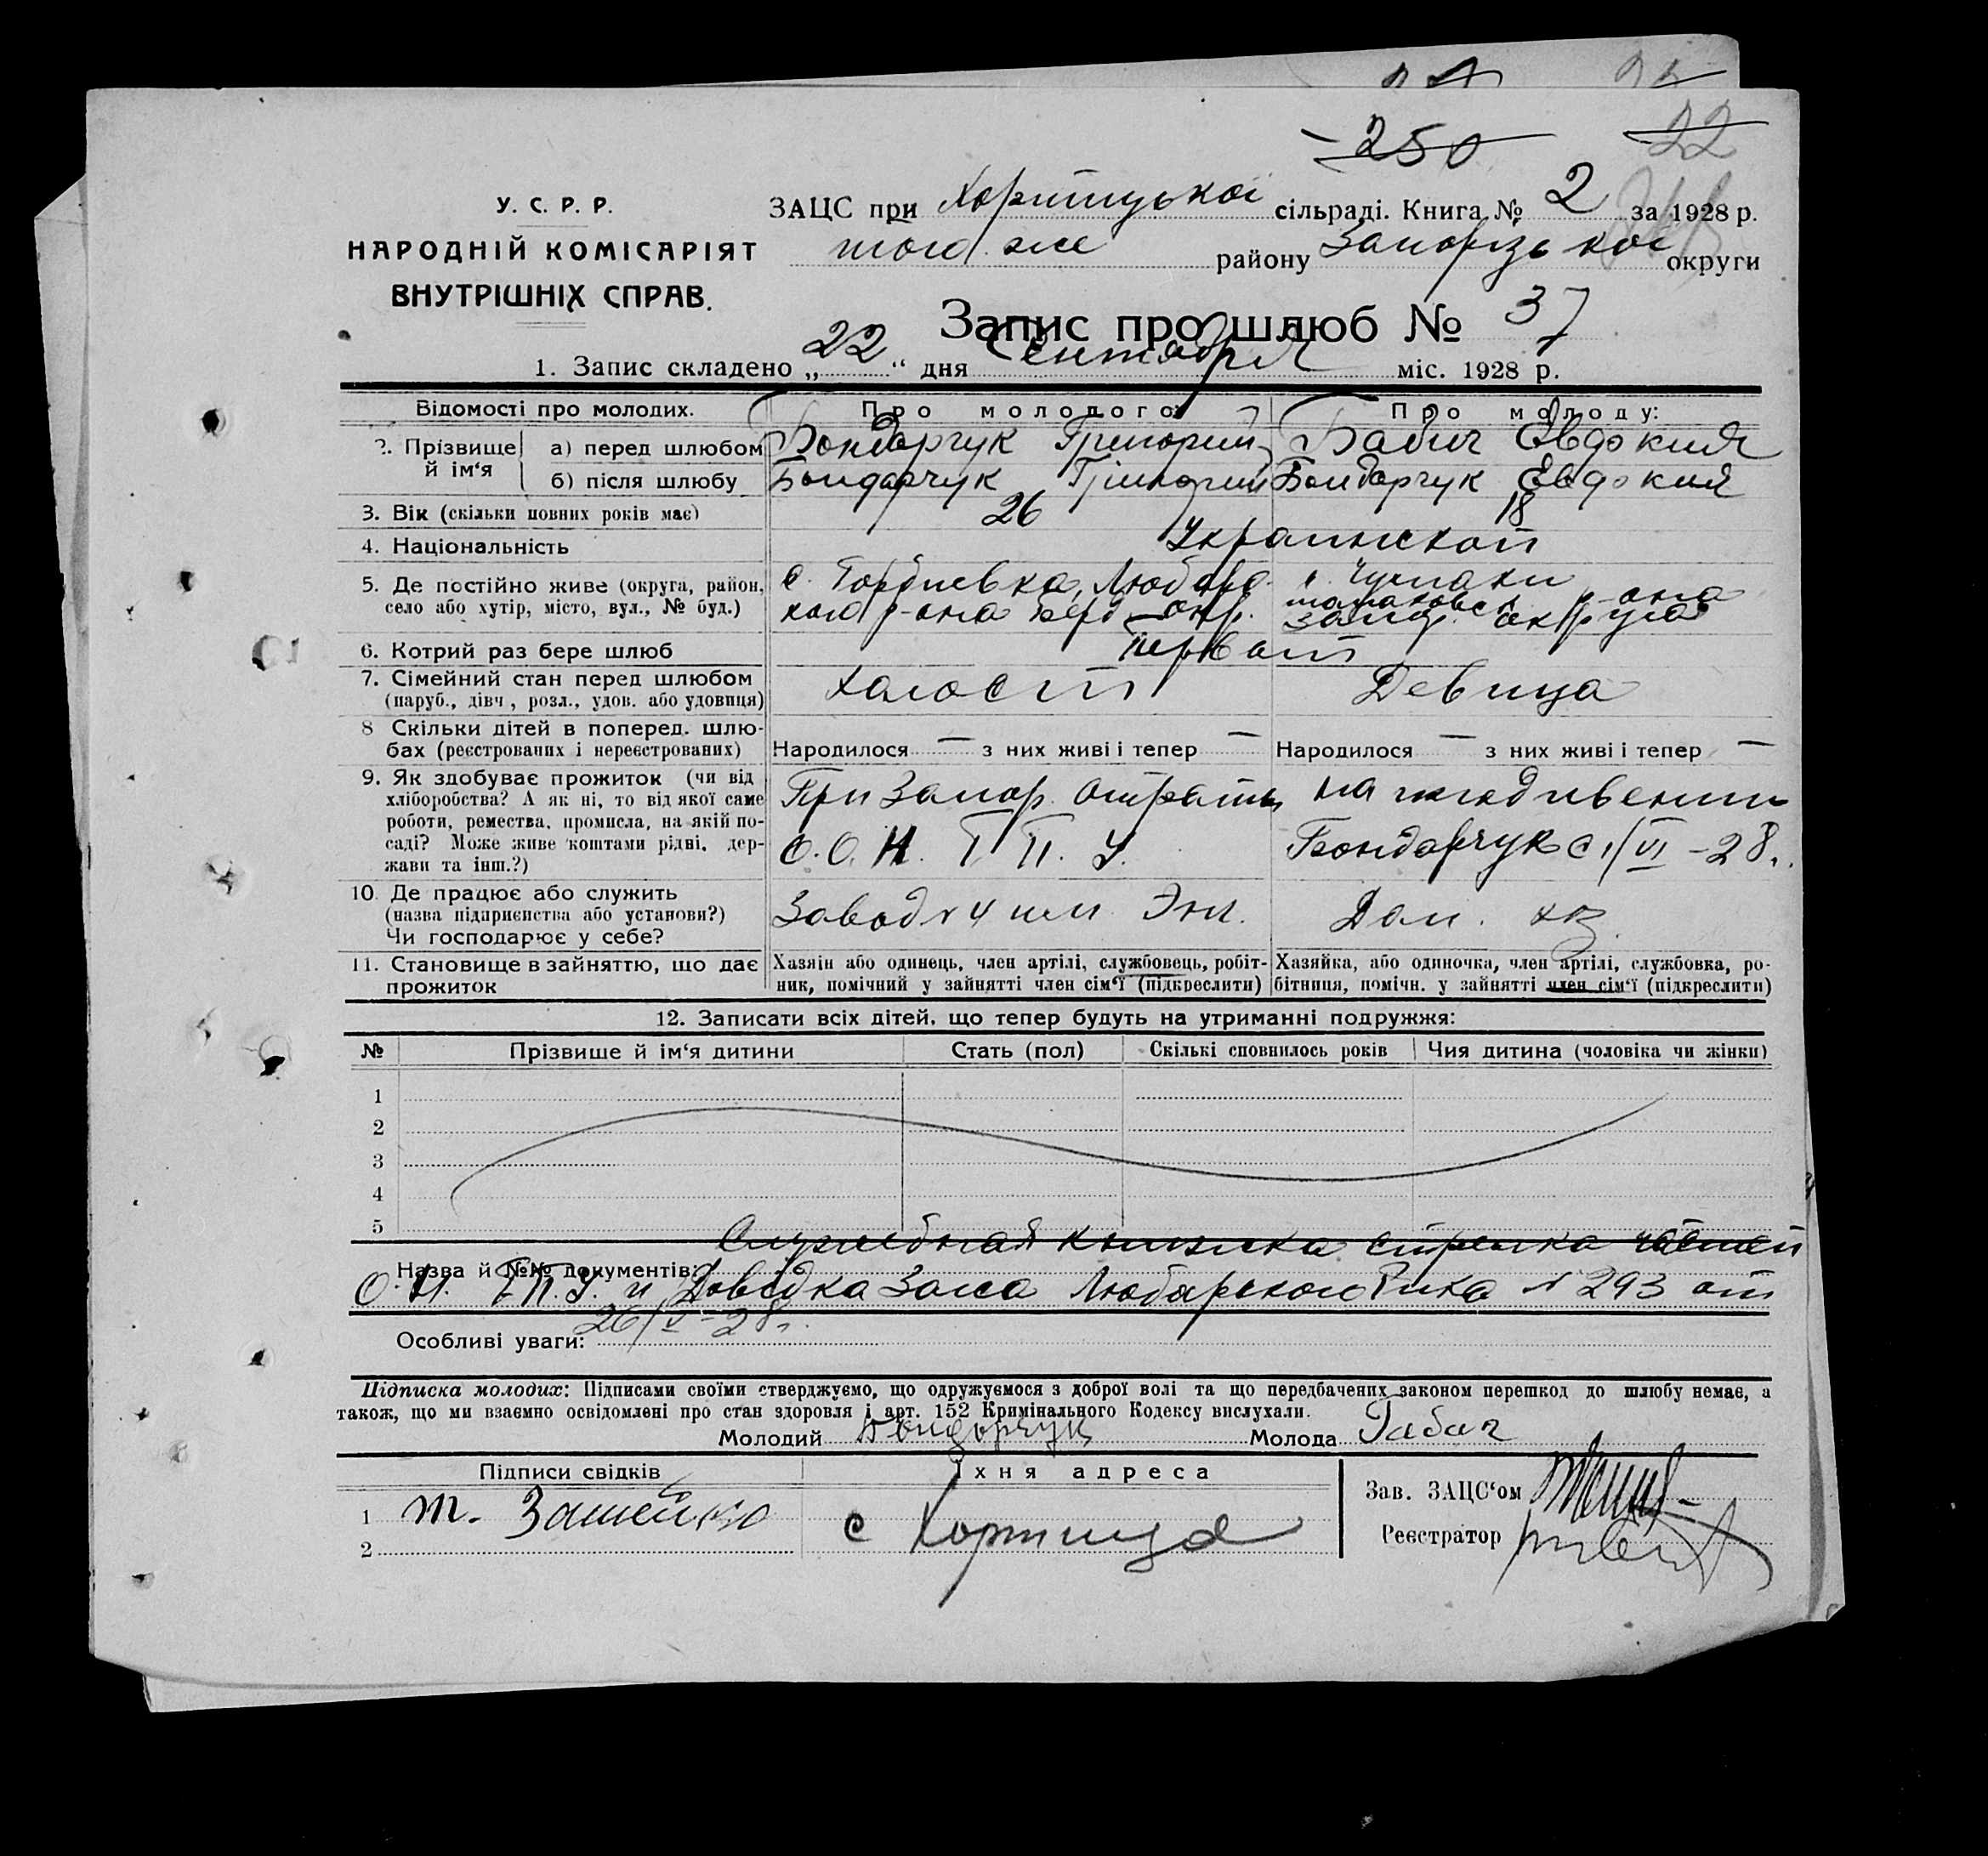 250 22
У. С. Р. Р.
НАРОДНІЙ КОМІСАРІЯТ
ВНУТРІШНІХ СПРАВ.
ЗАЦС при Хортицької сільраді. Книга № 2 за 1928 р.
того же району Запорізької округи
Запис про шлюб № 37
1. Запис складено „22“ дня Сентября міс. 1928 р.
Відомості про молодих. Про молодого: Про молоду:
2. Прізвище й ім‘я а) перед шлюбом Бондарчук Григорий Бабич Евдокия
б) після шлюбу Бондарчук Григорий Бондарчук Евдокия
3. Вік (скільки повних років має) 26 18
4. Національність Украинской
5. Де постійно живе (округа, район, с. Горбиевка, Любарс- с. Чумаки
село або хутір, місто, вул., № буд.) кого р-она Берд. окр. томаковск р-она
Запор. округа
6. Котрий раз бере шлюб Первой
7. Сімейний стан перед шлюбом Холост Девица
(паруб., дівч., розл., удов. або удовиця)
8 Скільки дітей в поперед. шлю-
бах (реєстрованих і нереєстрованих) Народилося — з них живі і тепер — Народилося — з них живі і тепер —
9. Як здобуває прожиток (чи від При Запор. на иждивении
хліборобства? А як ні, то від якої саме
роботи, ремества, промисла, на якій по- О. О. Н. Г. П. У. Бондарчук с 1/VI-28г.
саді? Може живе коштами рідні, дер-
жави та інш.?)
10. Де працює або служить Завод № 4 им. Энг. Дом. хоз
(назва підприємства або установи?)
Чи господарює у себе?
11. Становище в зайняттю, що дає Хазяїн або одинець, член артілі, службовець, робіт- Хазяйка, або одиночка, член артілі, службовка, ро-
прожиток ник, помічний у зайнятті член сім‘ї (підкреслити) бітниця, помічн. у зайнятті член сім‘ї (підкреслити)
12. Записати всіх дітей, що тепер будуть на утриманні подружжя:
№ Прізвище й ім‘я дитини Стать (пол) Скількі сповнилось років Чия дитина (чоловіка чи жінки)
1
2
3
4
5
Служебная книжка стрелка частей
Назва й №№ документів:
О. Н. Г.П.У. и Довідка Загса Любарского Рика № 293 от
26/V-28г.
Особливі уваги:
Підписка молодих: Підписами своїми стверджуємо, що одружуємося з доброї волі та що передбачених законом перешкод до шлюбу немає, а
також, що ми взаємно освідомлені про стан здоровля і арт. 152 Кримінального Кодексу вислухали.
Молодий Бондорчук Молода Бабич
Підписи свідків Їхня адреса
Зав. ЗАЦС‘ом
1 с Хортица
Реєстратор
2